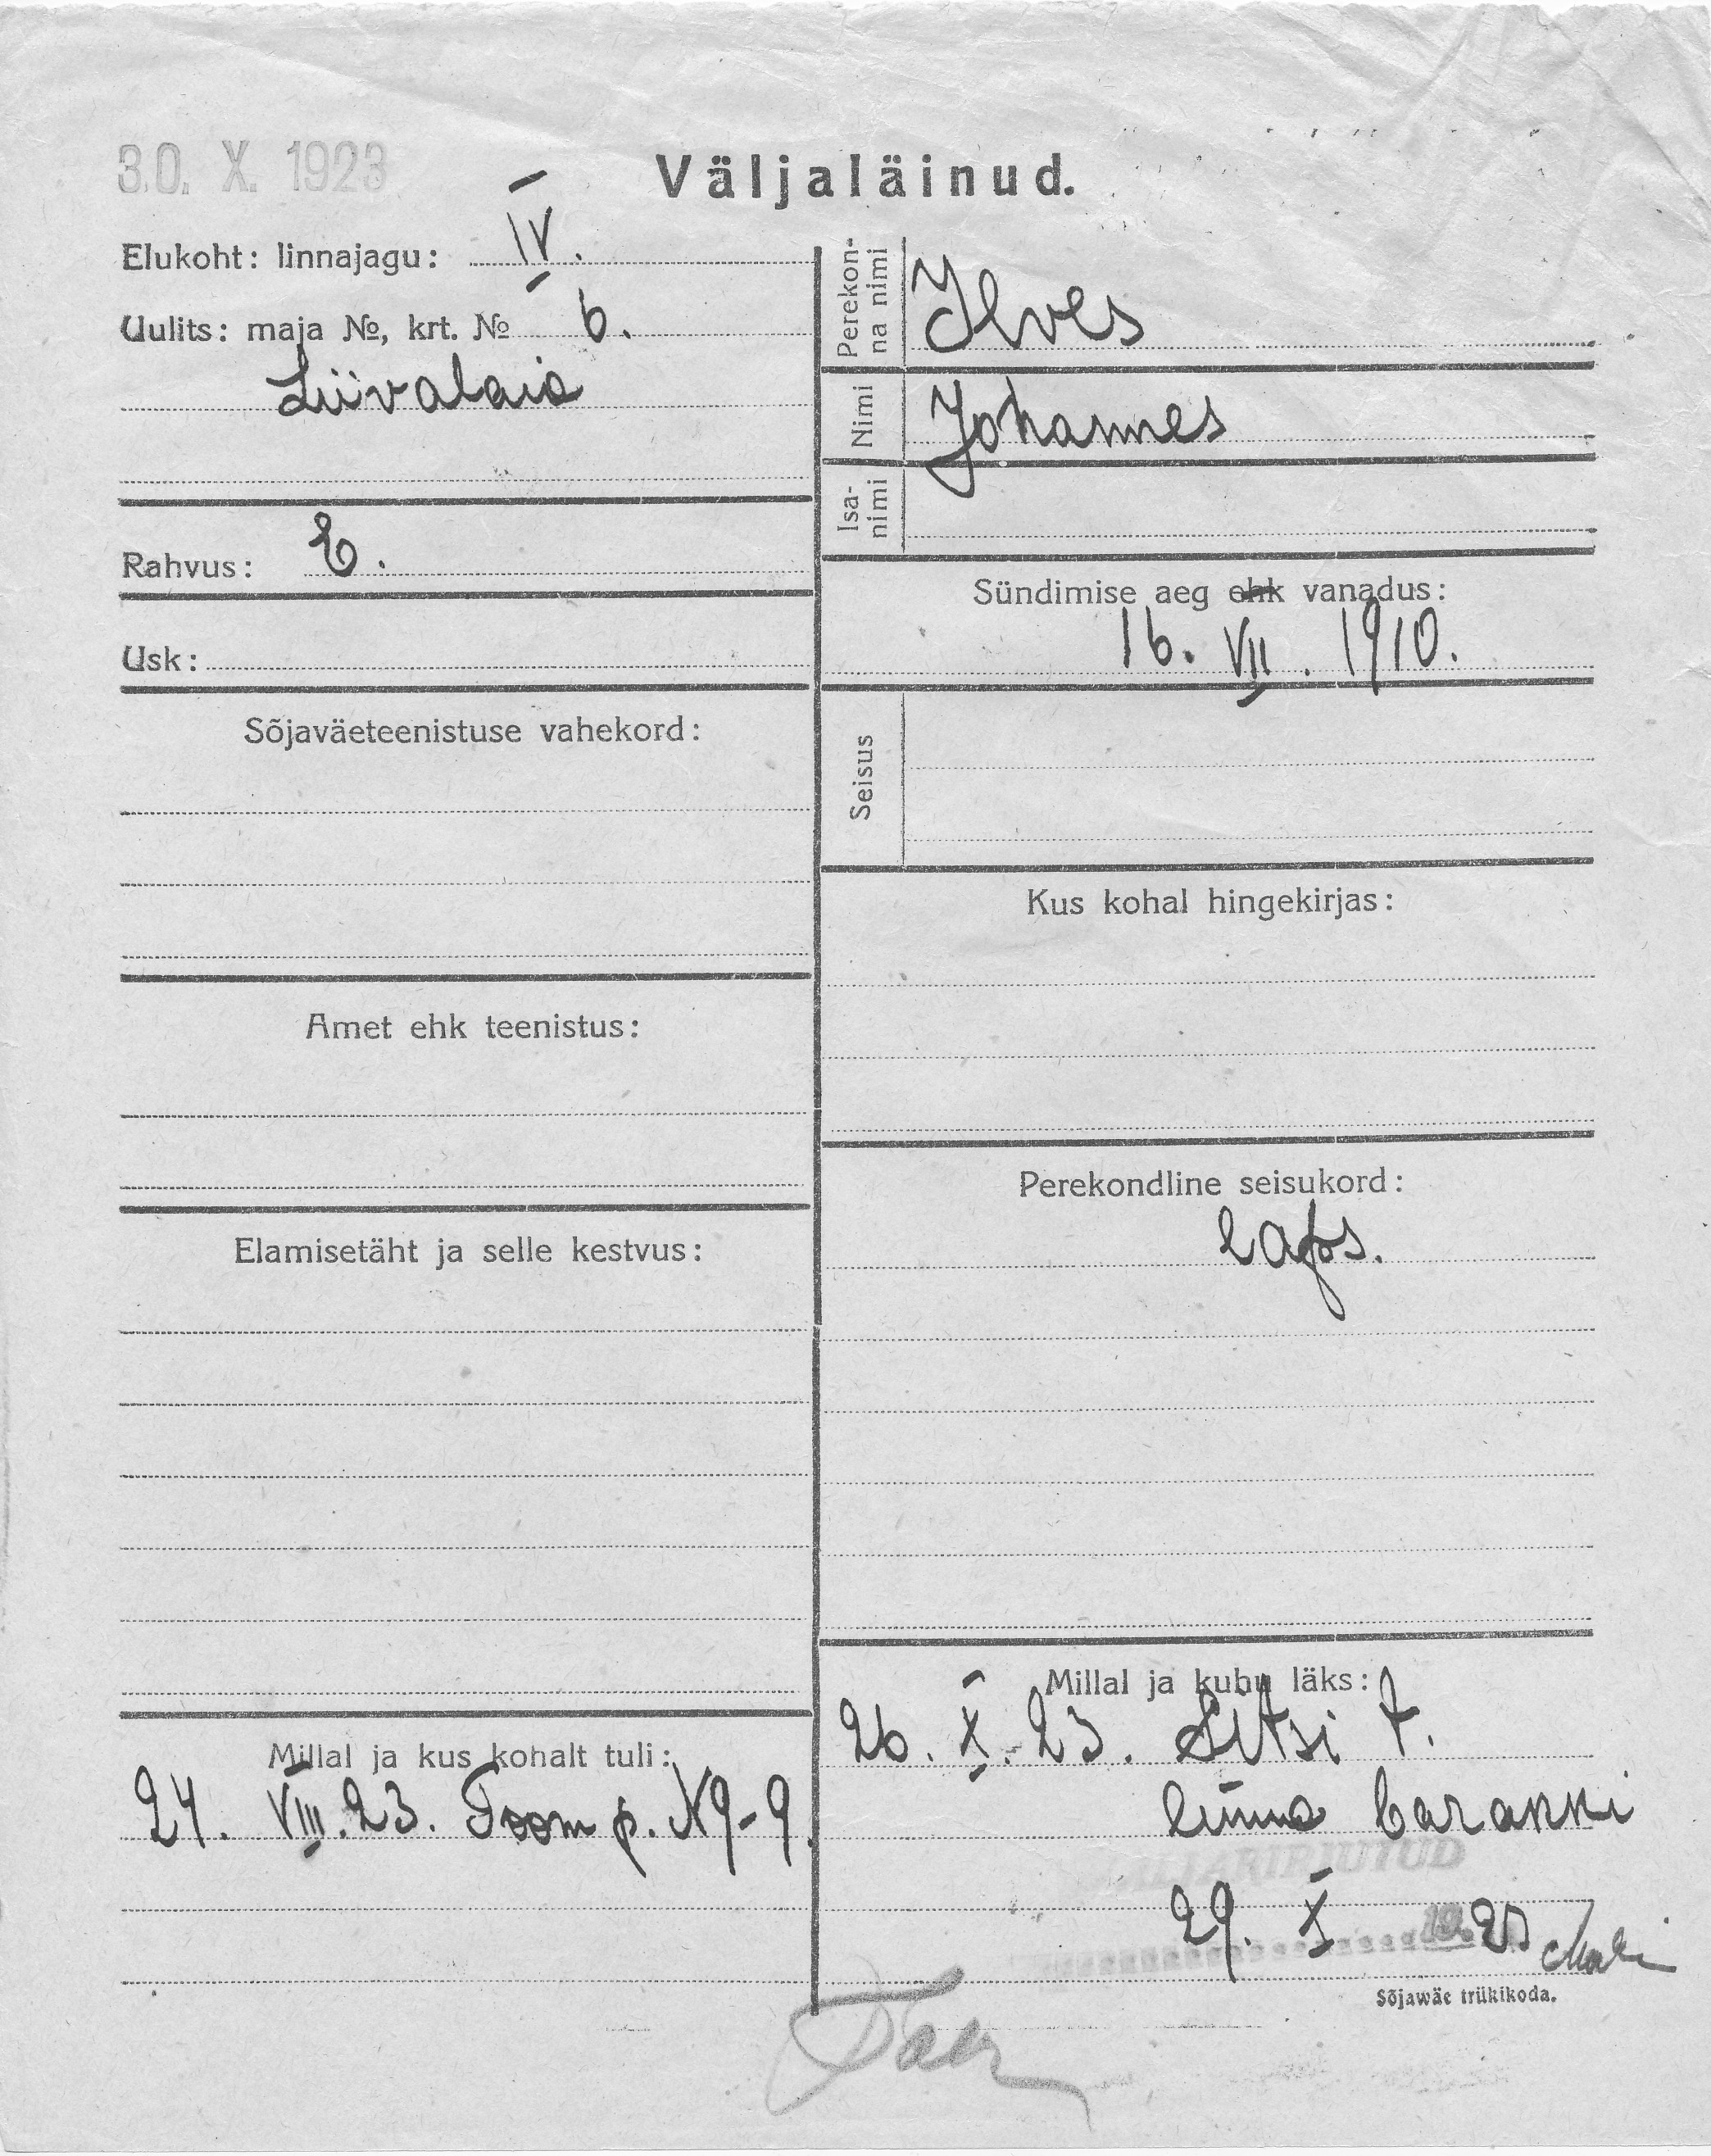 30. X. 1923
Väljaläinud.
Elukoht: linnajagu: IV.
Uulits: maja №, krt. № 6.
Liivalaia
Rahvus: E.
Usk:
Sõjaväeteenistuse vahekord:
Amet ehk teenistus:
Elamisetäht ja selle kestvus:
Millal ja kus kohalt tuli:
24. VIII. 23. Toom p. № 9-9.
Perekon-
na nimi
Ilves
Nimi
Johannes
Isa-
nimi
Sündimise aeg ehk vanadus:
16. VII. 1910.
Seisus
Kus kohal hingekirjas:
Perekondline seisukord:
laps.
Millal ja kuhu läks:
26. X. 23. Sitsi t.
linna barakki
29. X 1923
Sõjawäe trükikoda.